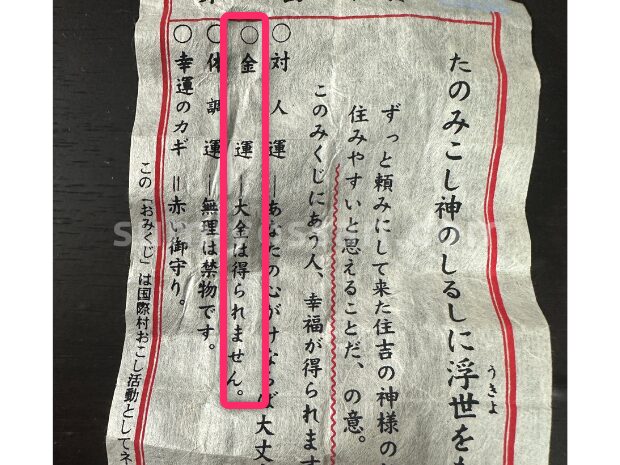 たのみこし神のしるしに浮世を
うきよ
ずっと頼みにして来た住吉の神様の
住みやすいと思えることだ、の意。
このみくじにあう人、幸福が得られます
○対人運―あなたの心がけならば大丈
○金運―大金は得られません。
○体調運―無理は禁物です。
○幸運のカギ=赤い御守り。
この「おみくじ」は国際村おこし活動としてネ